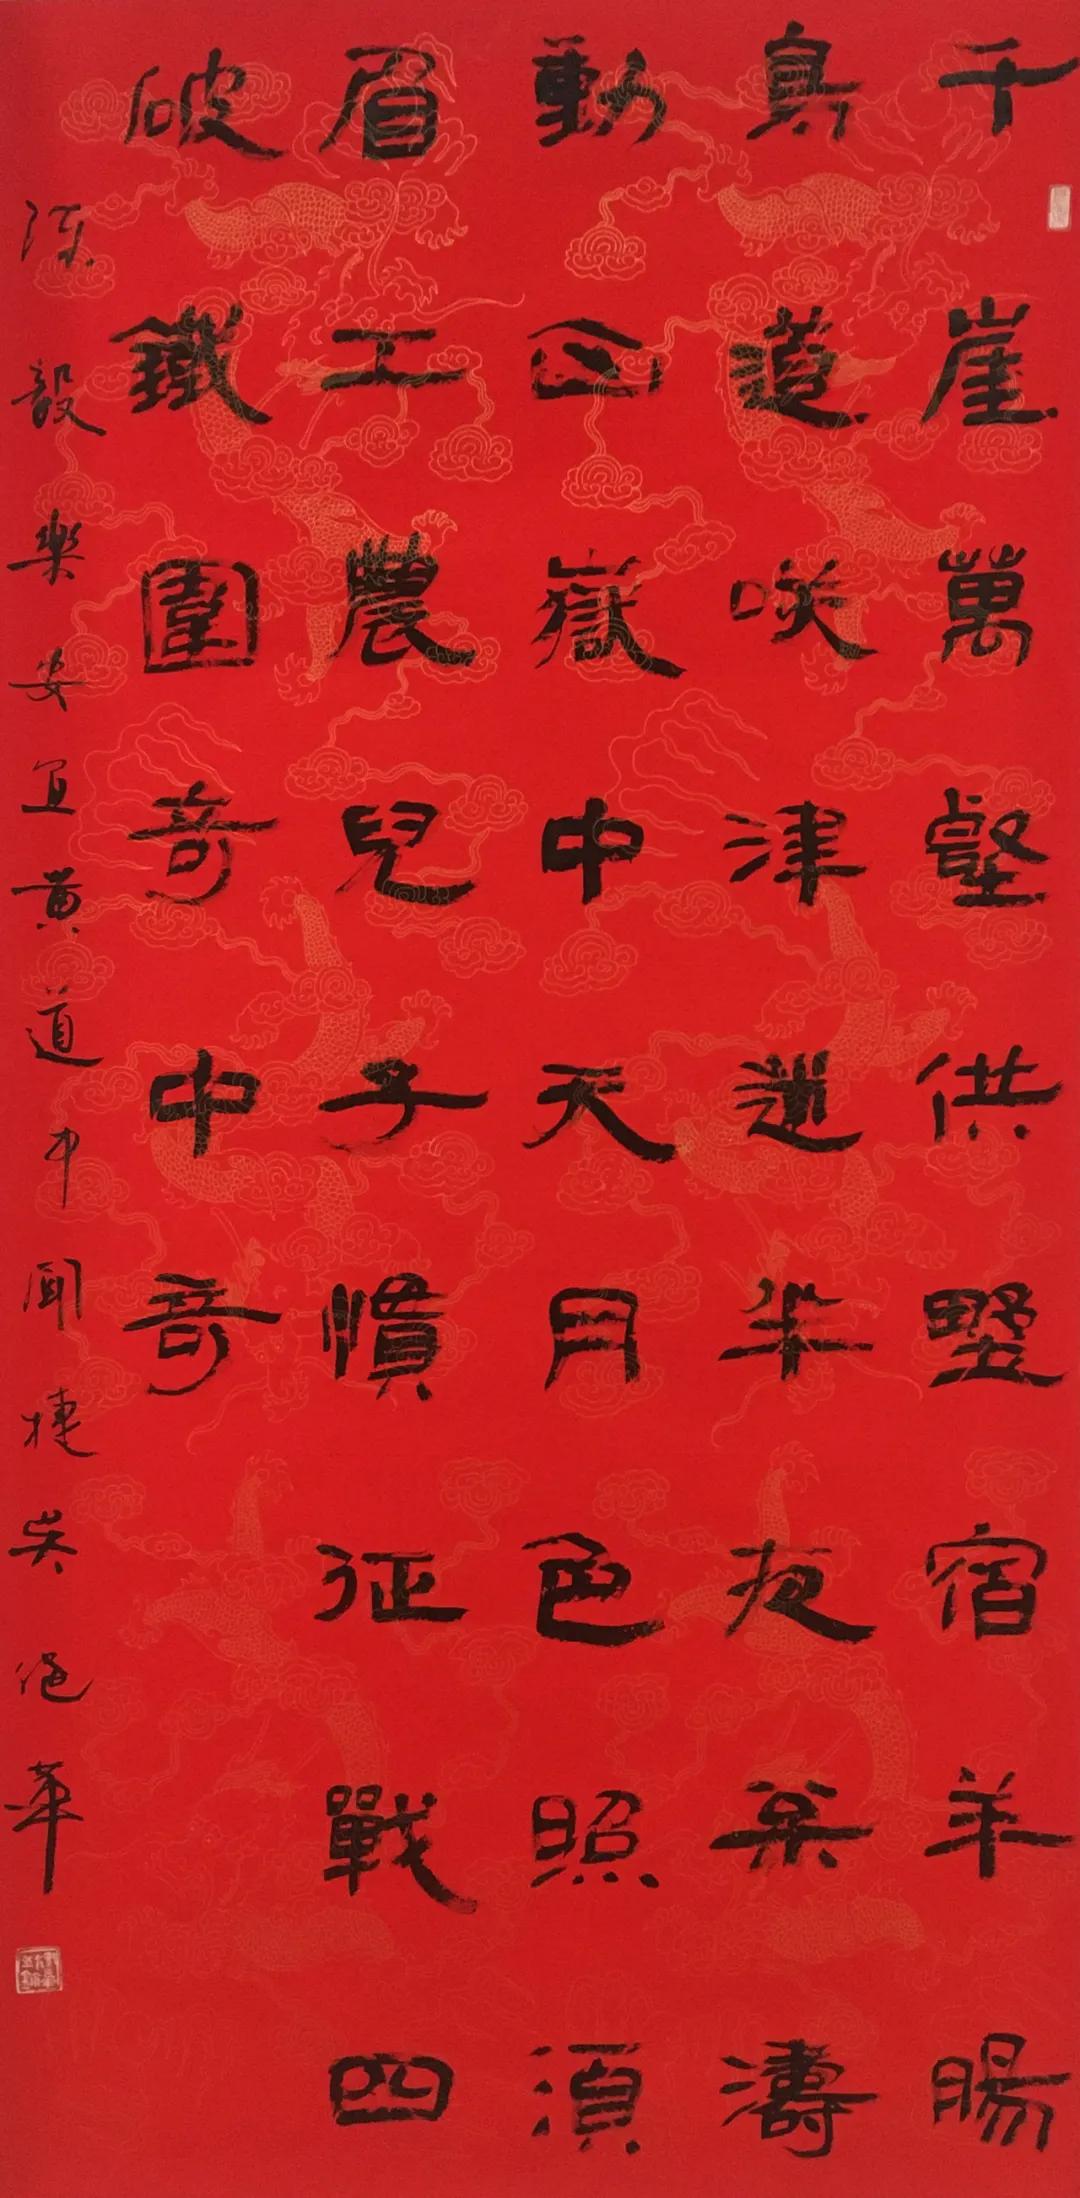 千崖萬壑供墅宿羊腸
鳥道咲津迷半夜枩濤
動山嶽中天月色照須
眉工農兒子慣征戰四
破鐵圍奇中奇
陳毅樂安宜黃道中聞捷吳華